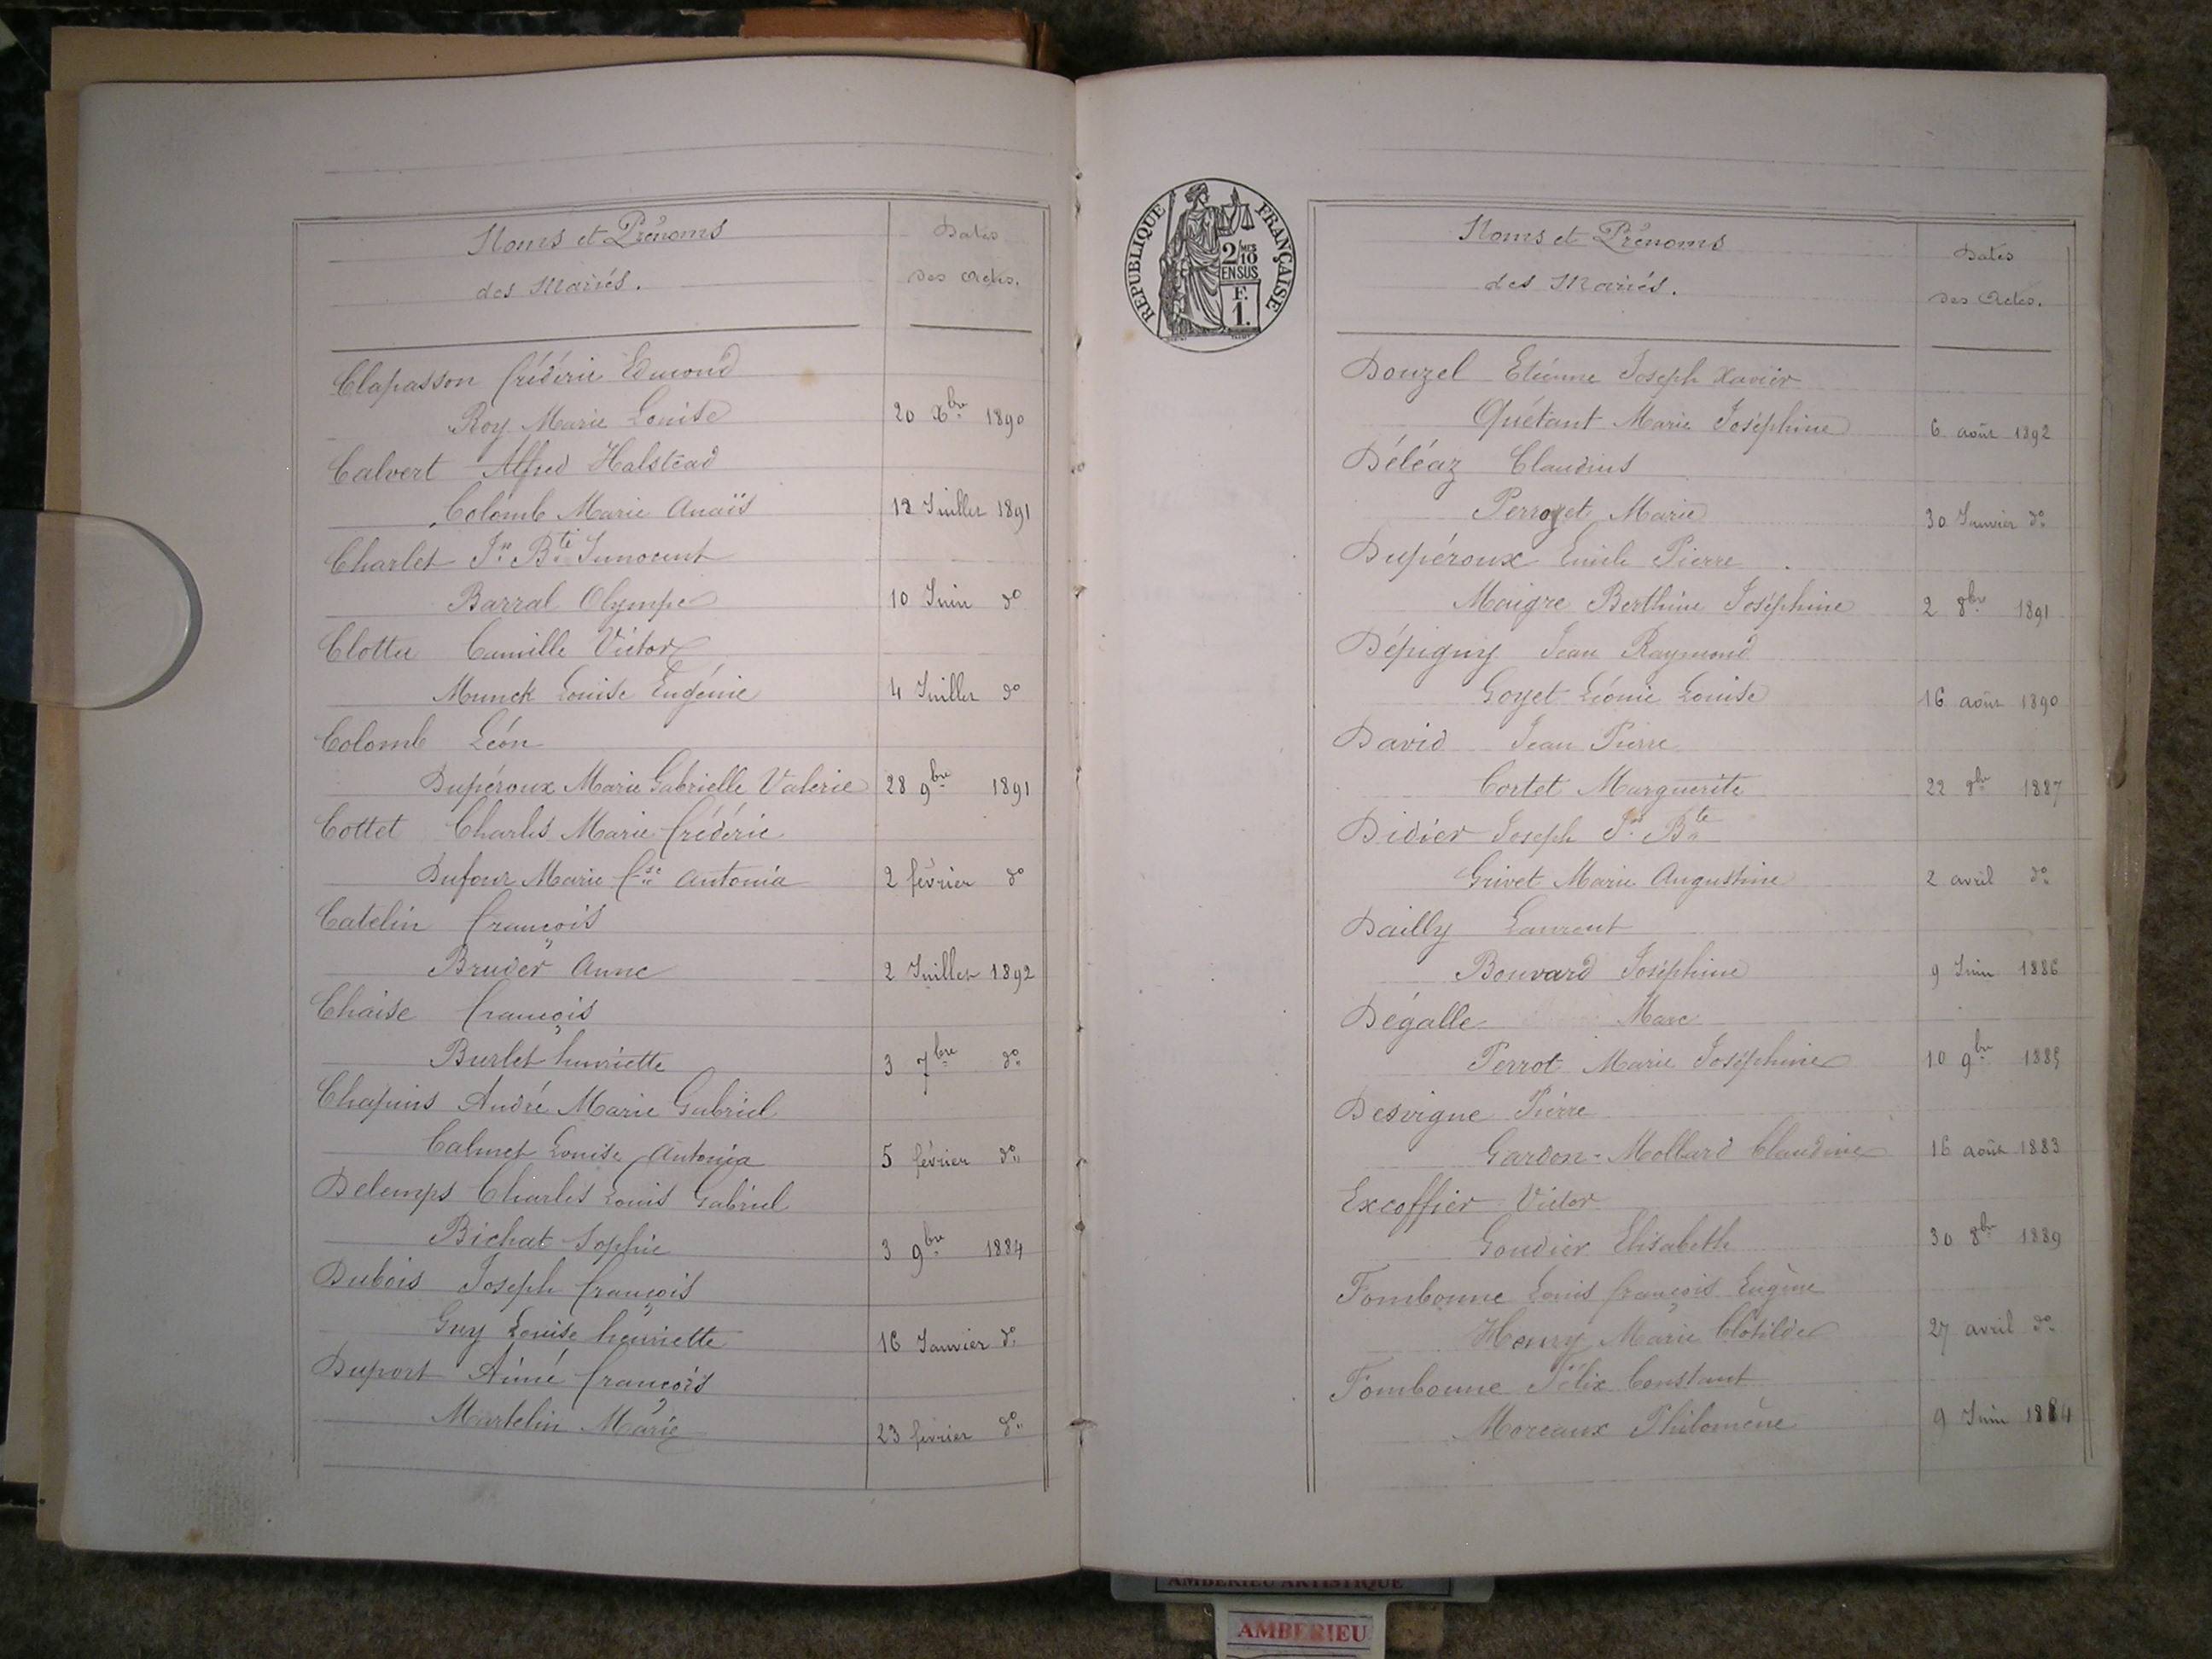 Noms et Prénoms
des Mariés.
Dates
des Actes.
Clapasson frédéric Edmond
Roy Marie Louise 20 Xbre 1890
Calvert Alfred Halstead
Colomb Marie Anaïs 12 Juillet 1891
Charlet Jn Bte Innocent
Barral Olympe 10 Juin do
Clotter Camille Victor
Munck Louise Eugénie 4 Juillet do
Colomb Léon
Dupéroux Marie Gabrielle Valerie 28 9bre 1891
Cottet Charles Marie frédéric
Dufour Marie fse Antonia 2 février do
Catelin françois
Bruder Anne 2 Juillet 1892
Chaise françois
Burlet henriette 3 7bre do
Chapuis André Marie Gabriel
Calmet Louise Antonia 5 février do
Delemps Charles Louis Gabriel
Bichat Sophie 3 9bre 1884
Dubois Joseph françois
Guy Louise henriette 16 Janvier do
Duport Aimé françois
Martelin Marie 23 février do
RÉPUBLIQUE FRANÇAISE
2/10 MES
EN SUS
F.
1.
Noms et Prénoms
des Mariés.
Dates
des Actes.
Douzel Etienne Joseph Xavier
Quétant Marie Joséphine 6 août 1892
Déléaz Claudius
Perroyet Marie 30 Janvier do
Dupéroux Emile Pierre
Maigre Berthine Joséphine 2 8bre 1891
Dépigny Jean Raymond
Goyet Léonie Louise 16 août 1890
David Jean Pierre
Cortet Marguerite 22 8bre 1887
Didier Joseph Jn Bte
Grivet Marie Augustine 2 avril do
Dailly Laurent
Bouvard Joséphine 9 Juin 1886
Dégalle Marc
Perrot Marie Joséphine 10 9bre 1885
Desvigne Pierre
Gardon-Mollard Claudine 16 août 1883
Excoffier Victor
Goudier Elisabeth 30 8bre 1889
Fombonne Louis françois Eugène
Henry Marie Clotilde 27 avril do
Fombonne Félix Constant
Moreaux Philomène 9 Juin 1884
AMBERIEU ARTISTIQUE
AMBERIEU